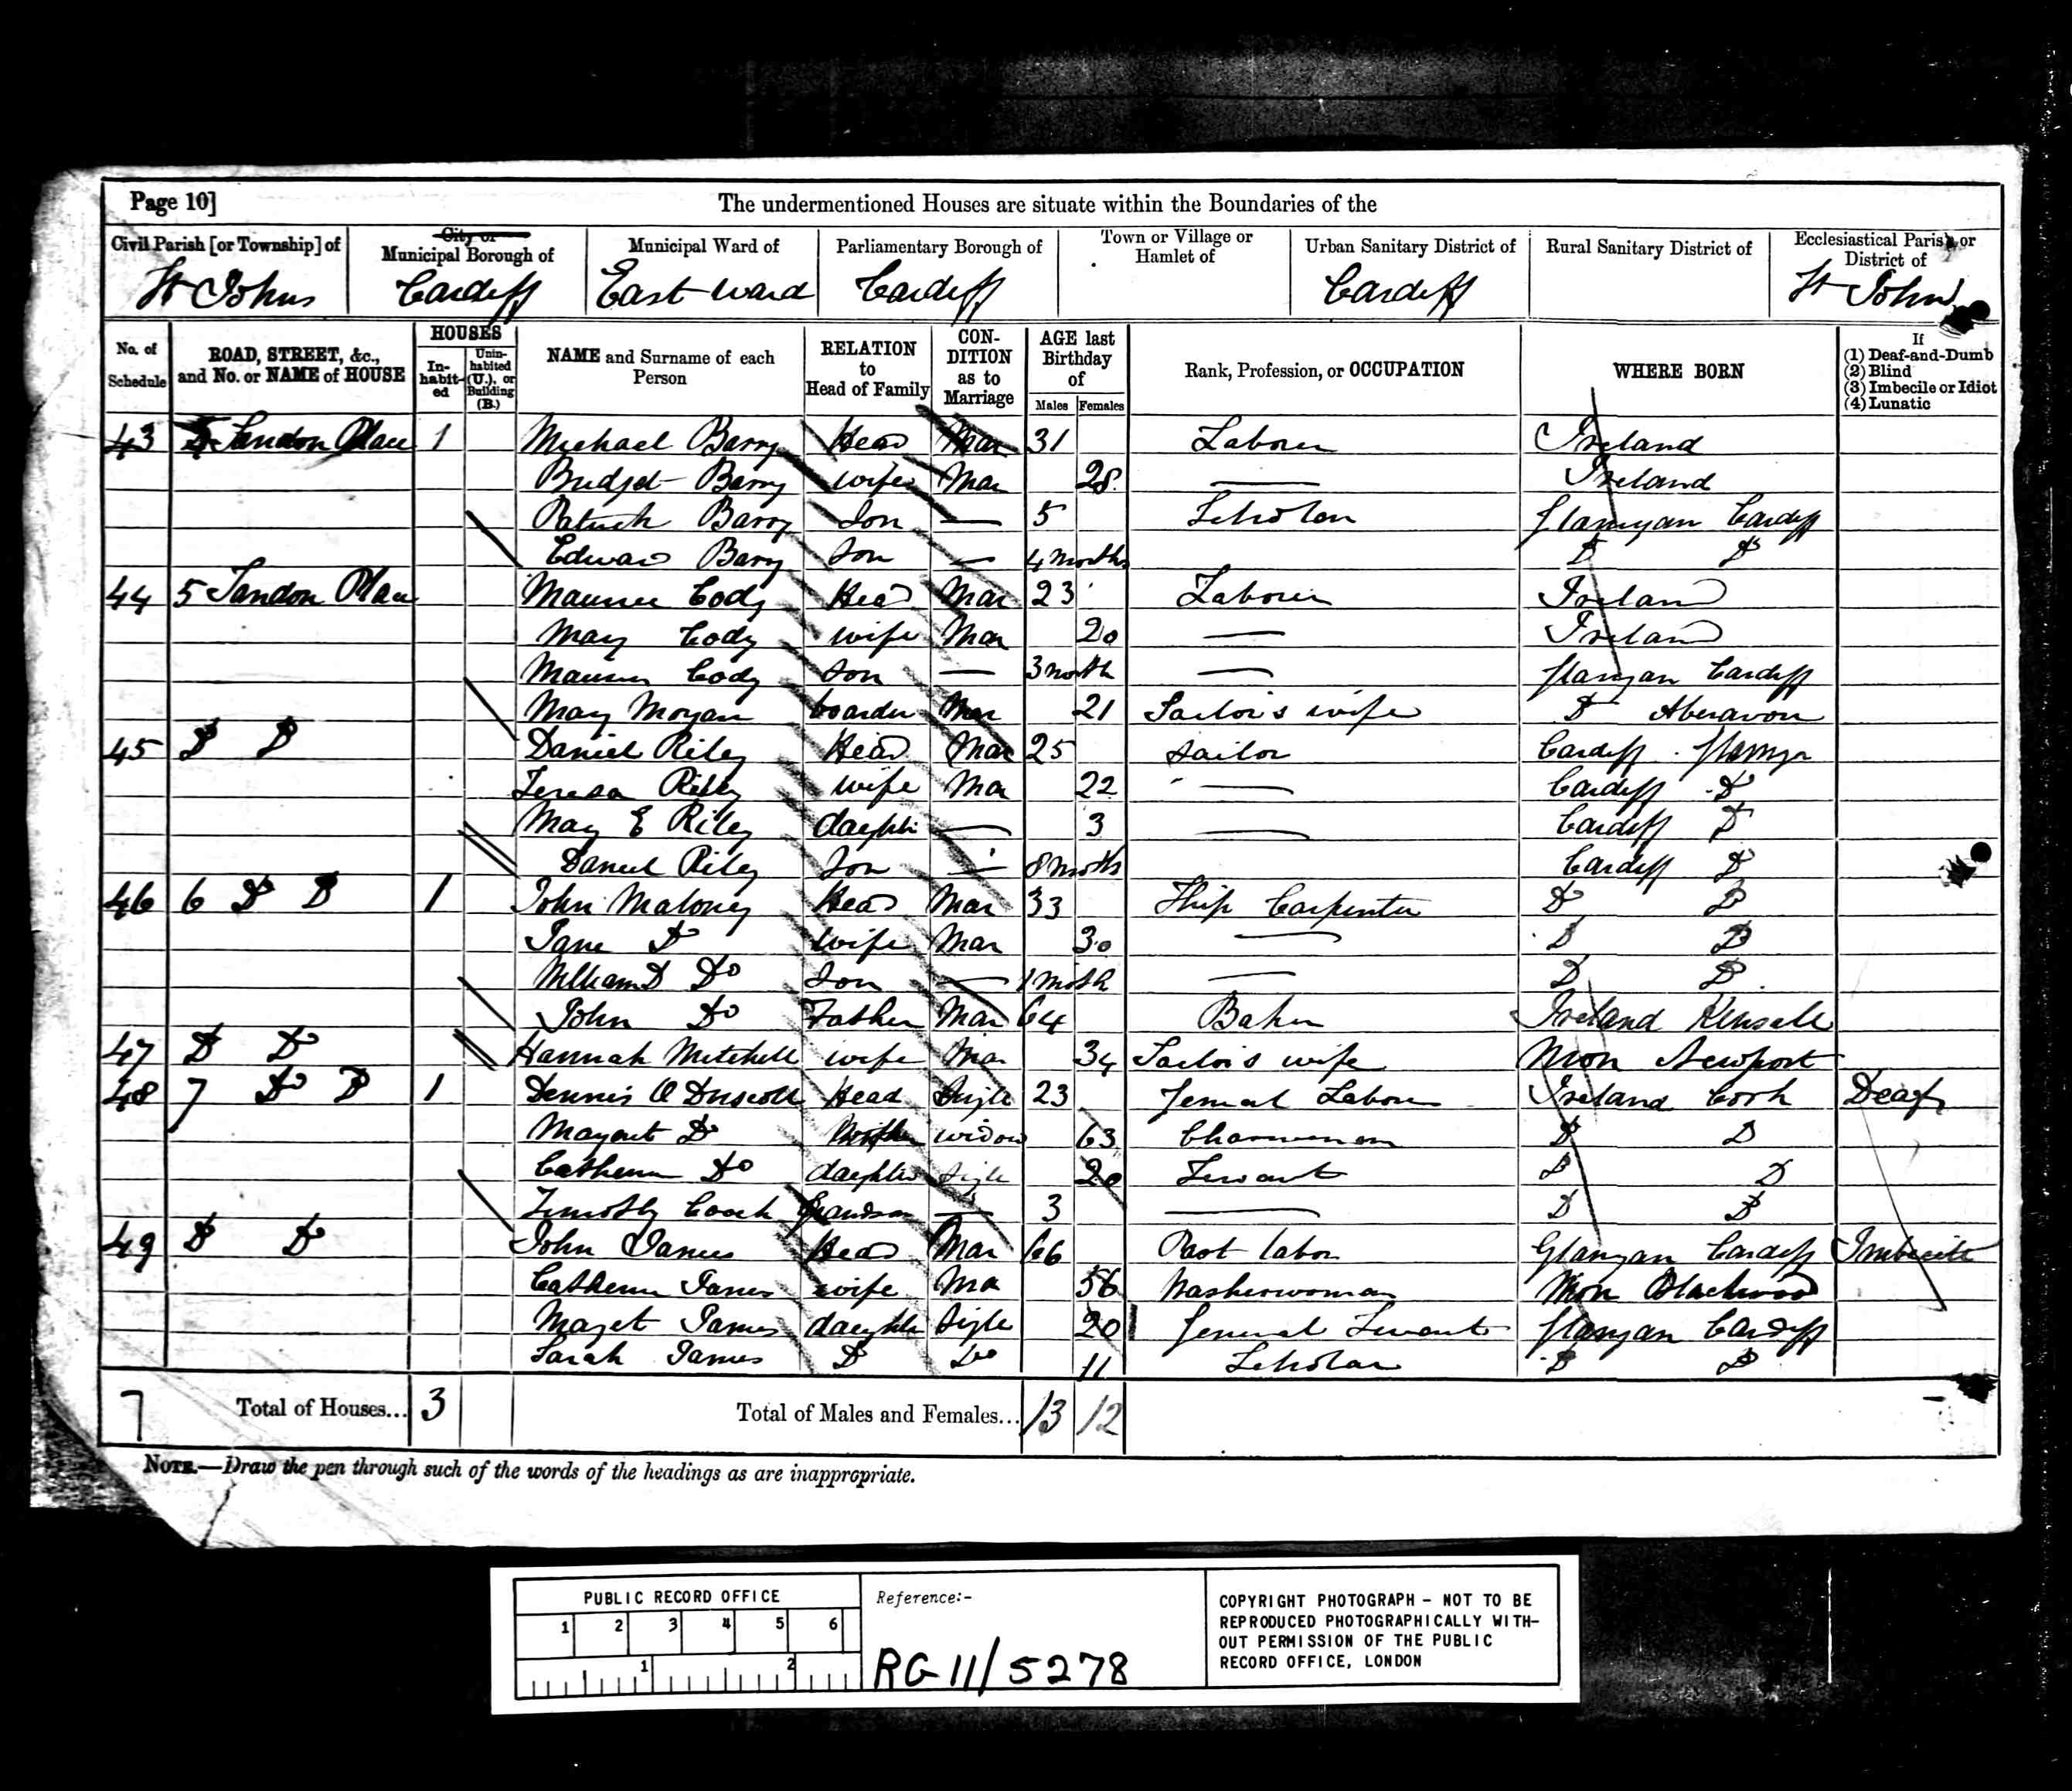 Page 10]
The undermentioned Houses are situate within the Boundaries of the
Civil Parish [or Township] of City or Municipal Borough of Municipal Ward of Parliamentary Borough of Town or Village or Hamlet of Urban Sanitary District of Rural Sanitary District of Ecclesiastical Parish or District of
St Johns Cardiff East Ward Cardiff Cardiff St John
No. of Schedule ROAD, STREET, &c., and No. or NAME of HOUSE HOUSES In-habit-ed Unin-habited (U.), or Building (B.) NAME and Surname of each Person RELATION to Head of Family CON-DITION as to Marriage AGE last Birthday of Males Females Rank, Profession, or OCCUPATION WHERE BORN If (1) Deaf-and-Dumb (2) Blind (3) Imbecile or Idiot (4) Lunatic
43 Landon Place 1 Michael Barry Head Mar 31 Labourer Ireland
Bridget Barry wife Mar 28 — Ireland
Patrick Barry Son — 5 Scholar Glamgan Cardiff
Edward Barry Son — 4 Months Do Do
44 5 Landon Place Maurice Cody Head Mar 23 Labourer Ireland
Mary Cody wife Mar 20 — Ireland
Maurice Cody Son — 3 month — Glamgan Cardiff
Mary Morgan boarder Mar 21 Sailor's wife Do Aberavon
45 Do Do Daniel Riley Head Mar 25 Sailor Cardiff Glamgn
Teresa Riley wife Mar 22 — Cardiff Do
Mary E Riley daughter — 3 — Cardiff Do
Daniel Riley Son — 8 months Cardiff Do
46 6 Do Do 1 John Maloney Head Mar 33 Ship Carpenter Do Do
Jane Do wife Mar 30 — Do Do
William D Do Son — 1 month — Do Do
John Do Father Mar 64 Baker Ireland Kinsale
47 Do Do Hannah Mitchell wife Mar 34 Sailor's wife Mon Newport
48 7 Do Do 1 Dennis O Driscoll Head Single 23 General Labourer Ireland Cork Deaf
Margaret Do Mother widow 63 Charwoman Do Do
Catherine Do daughter Single 20 Servant Do Do
Timothy Grandson — 3 — Do Do
49 Do Do John James Head Mar 66 labor Glamgan Cardiff Imbecile
Catherine James wife Mar 56 Washerwoman Mon Blackwood
Margret James daughter Single 20 General Servant Glamgan Cardiff
Sarah James Do Do 11 Scholar Do Do
7 Total of Houses... 3 Total of Males and Females... 13 12
NOTE.—Draw the pen through such of the words of the headings as are inappropriate.
PUBLIC RECORD OFFICE
1 2 3 4 5 6
1 2
Reference:-
RG 11/5278
COPYRIGHT PHOTOGRAPH - NOT TO BE
REPRODUCED PHOTOGRAPHICALLY WITH-
OUT PERMISSION OF THE PUBLIC
RECORD OFFICE, LONDON